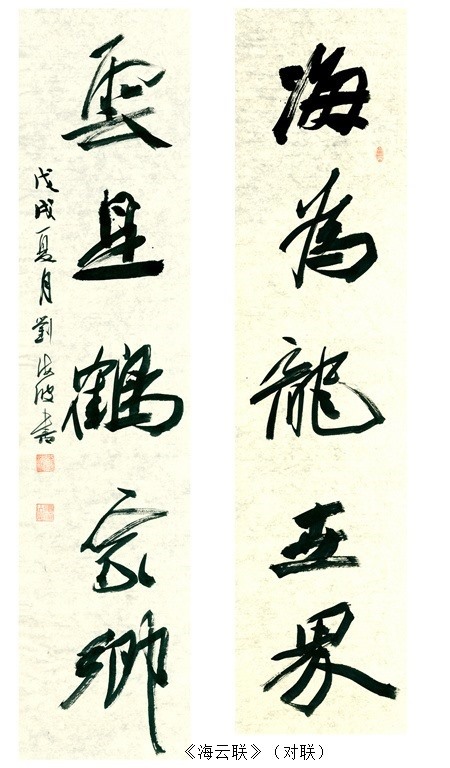 海为龍世界
雲是鶴家鄉
戊戌夏月劉海波書
《海云联》（对联）